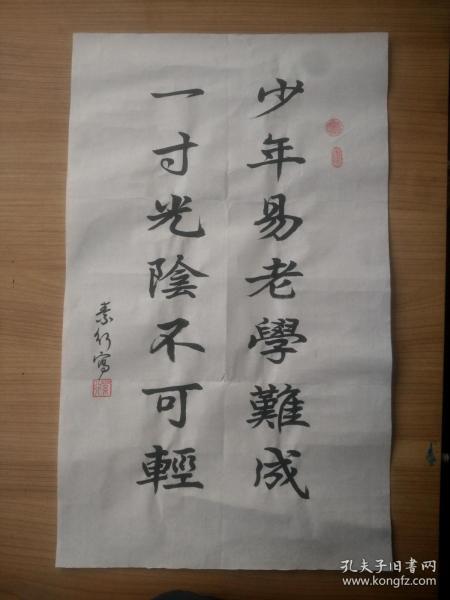 少年易老學難成
一寸光陰不可輕
素行寫
孔夫子旧书网
www.kongfz.com